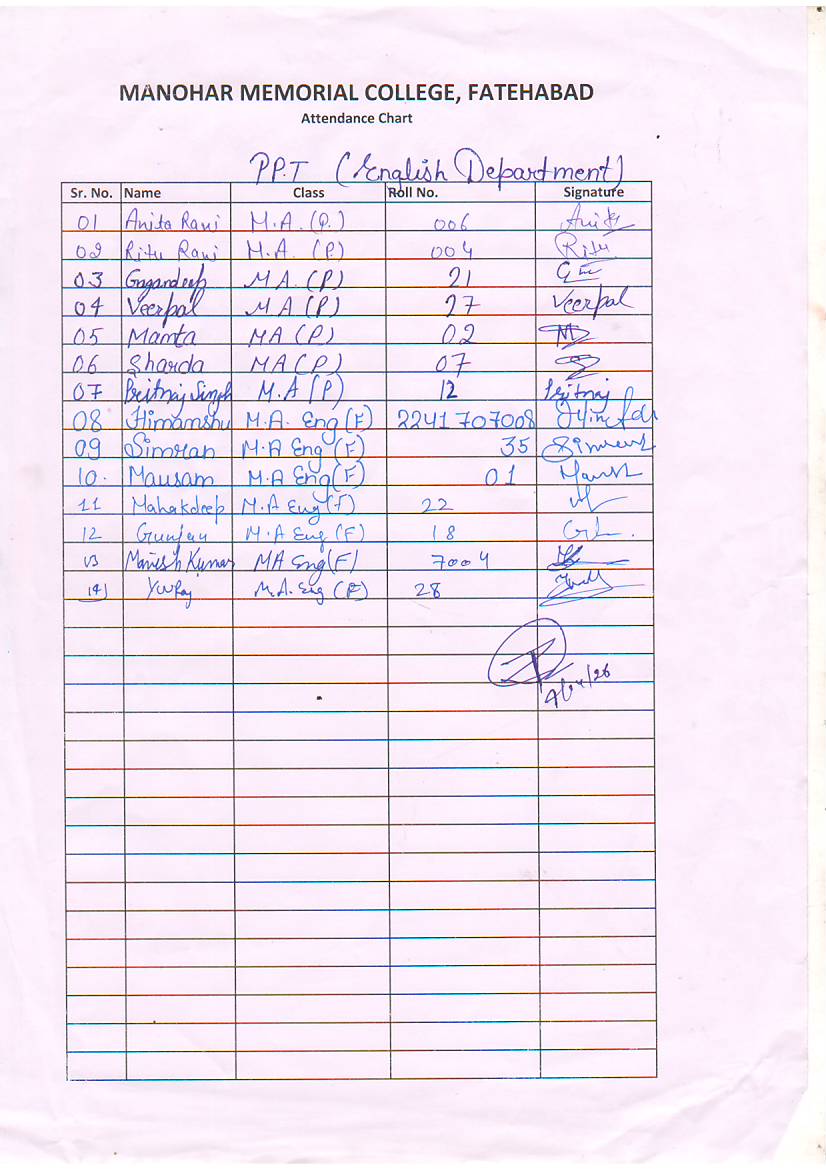 MANOHAR MEMORIAL COLLEGE, FATEHABAD
Attendance Chart
PPT (English Department)
Sr. No. Name Class Roll No. Signature
01 Anita Rani M.A.(P.) 006 Anita
02 Ritu Rani M.A. (P.) 004 Ritu
03 Gagandeep MA.(P) 21
04 Veerpal MA(P) 27 Veerpal
05 Mamta MA(P) 02 M
06 Sharda MA(P) 07
07 Pritraj Singh M.A(P) 12 Pritraj
08 Himanshu M.A. Eng(F) 2241707008
09 Simran M.A Eng(F) 35 Simran
10. Mausam M.A Eng(F) 01
11 Mahakdeep M.A Eng(f) 22
12 Gunjan M.A Eng (F) 18
13 Manish Kumar MA Eng(F) 7004
14) Yuvraj M.A. Eng (F) 28